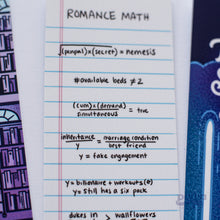 ROMANCE MATH
√(penpal)×(secret) × nemesis
#available beds ≠ 2
(cum)×(demand) = true
simultaneous
inheritance = marriage condition
y best friend
y = fake engagement
y = billionaire + workouts(0)
y = still has a six pack
dukes in > wallflowers